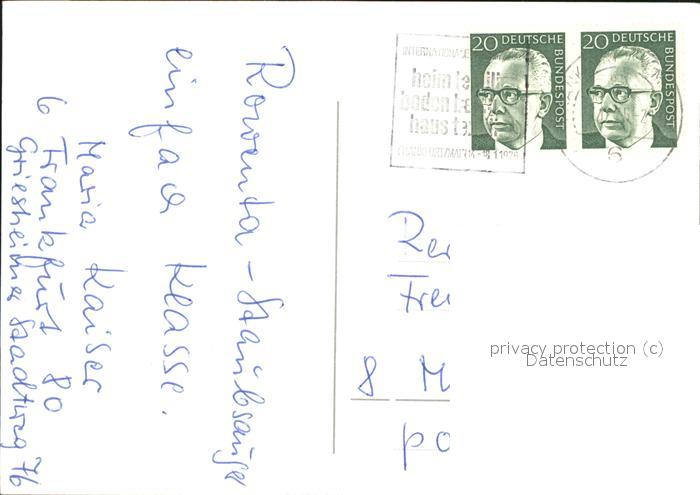 Rowenta-Staubsauger
einfach Klasse.
Maria Kaiser
6 Frankfurt 80
Griesheimer Stadtweg 76
20 DEUTSCHE BUNDESPOST
20 DEUTSCHE BUNDESPOST
INTERNATIONALE
heim
boden
haus
1976
6
8 M
po
privacy protection (c)
Datenschutz